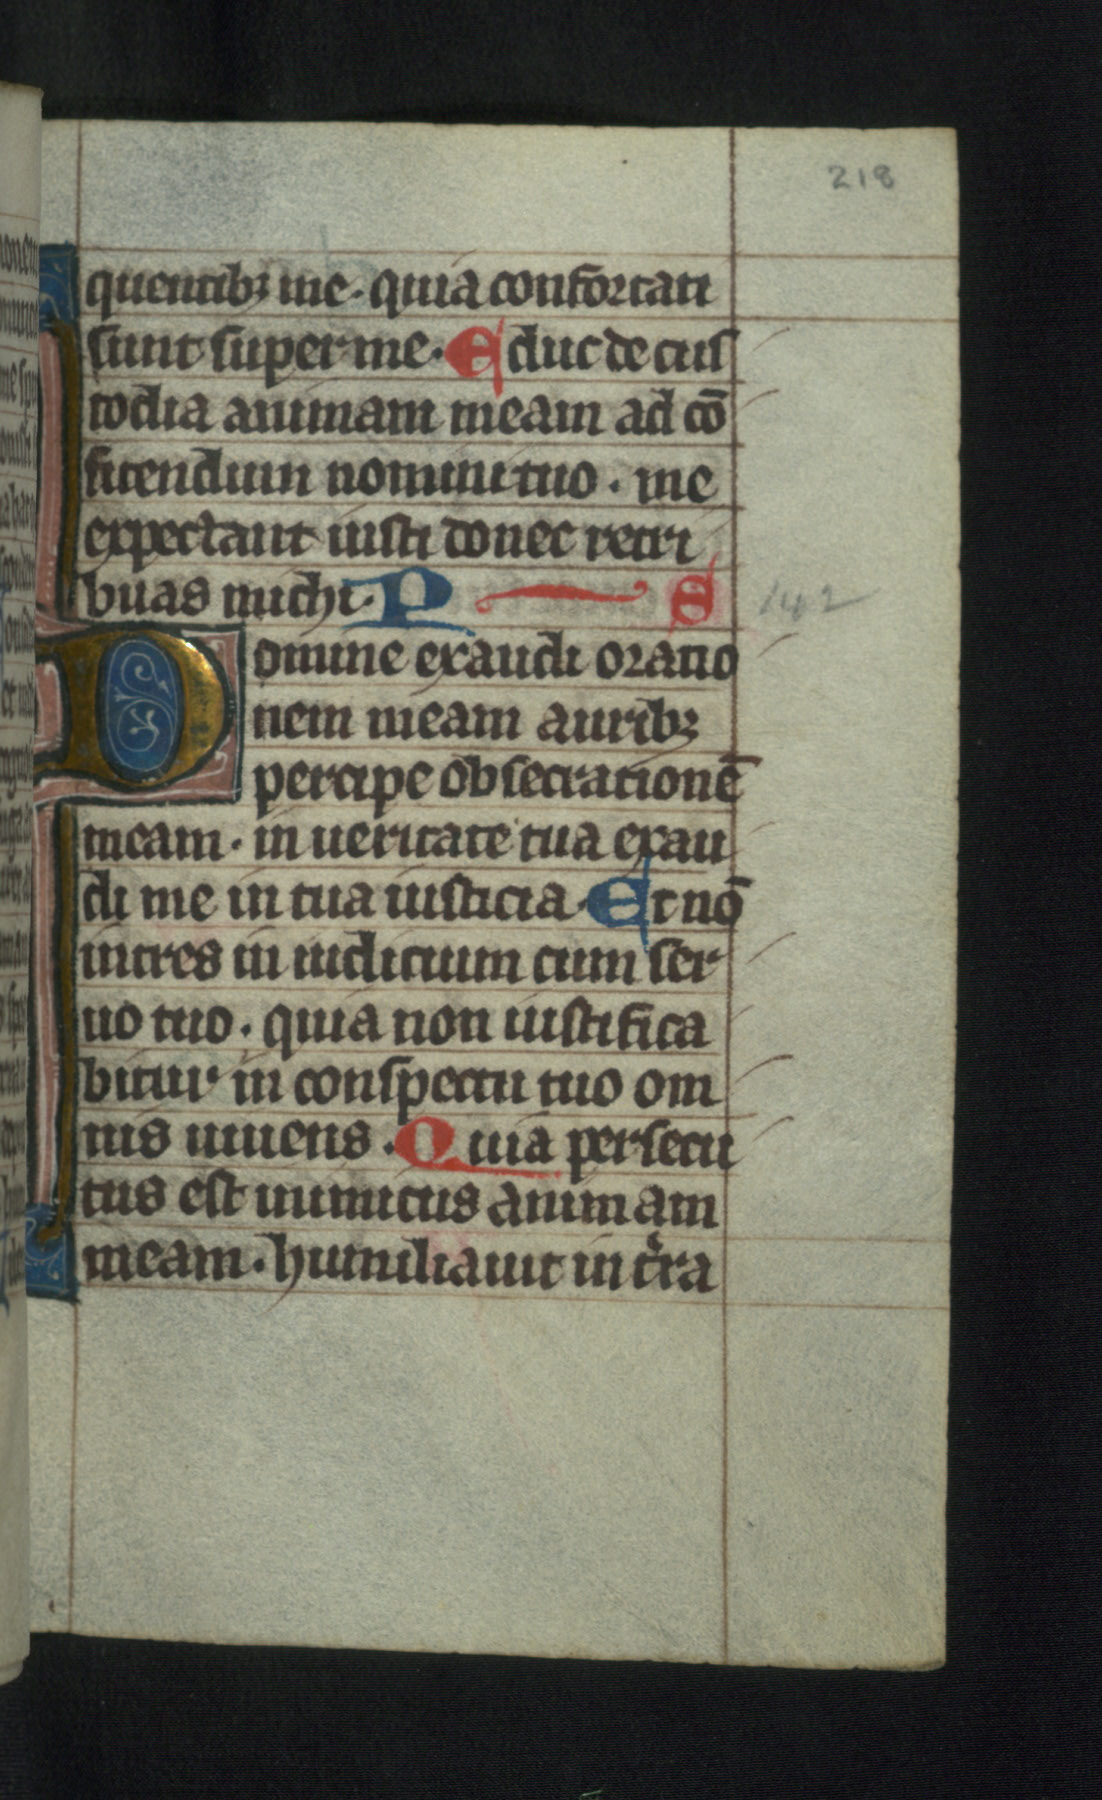 218
quentibꝫ me. quia confortati
sunt super me. Educ de cus
todia animam meam ad cō
fitendum nomini tuo. me
expectant iusti donec retri
buas michi. P S
142
Domine exaudi oratio
nem meam auribꝫ
percipe obsecrationē
meam. in ueritate tua exau
di me in tua iusticia. Et nō
intres in iudicium cum ser
uo tuo. quia non iustifica
bitur in conspectu tuo om
nis uiuens. Quia persecu
tus est inimicus animam
meam. humiliauit in tr̄a